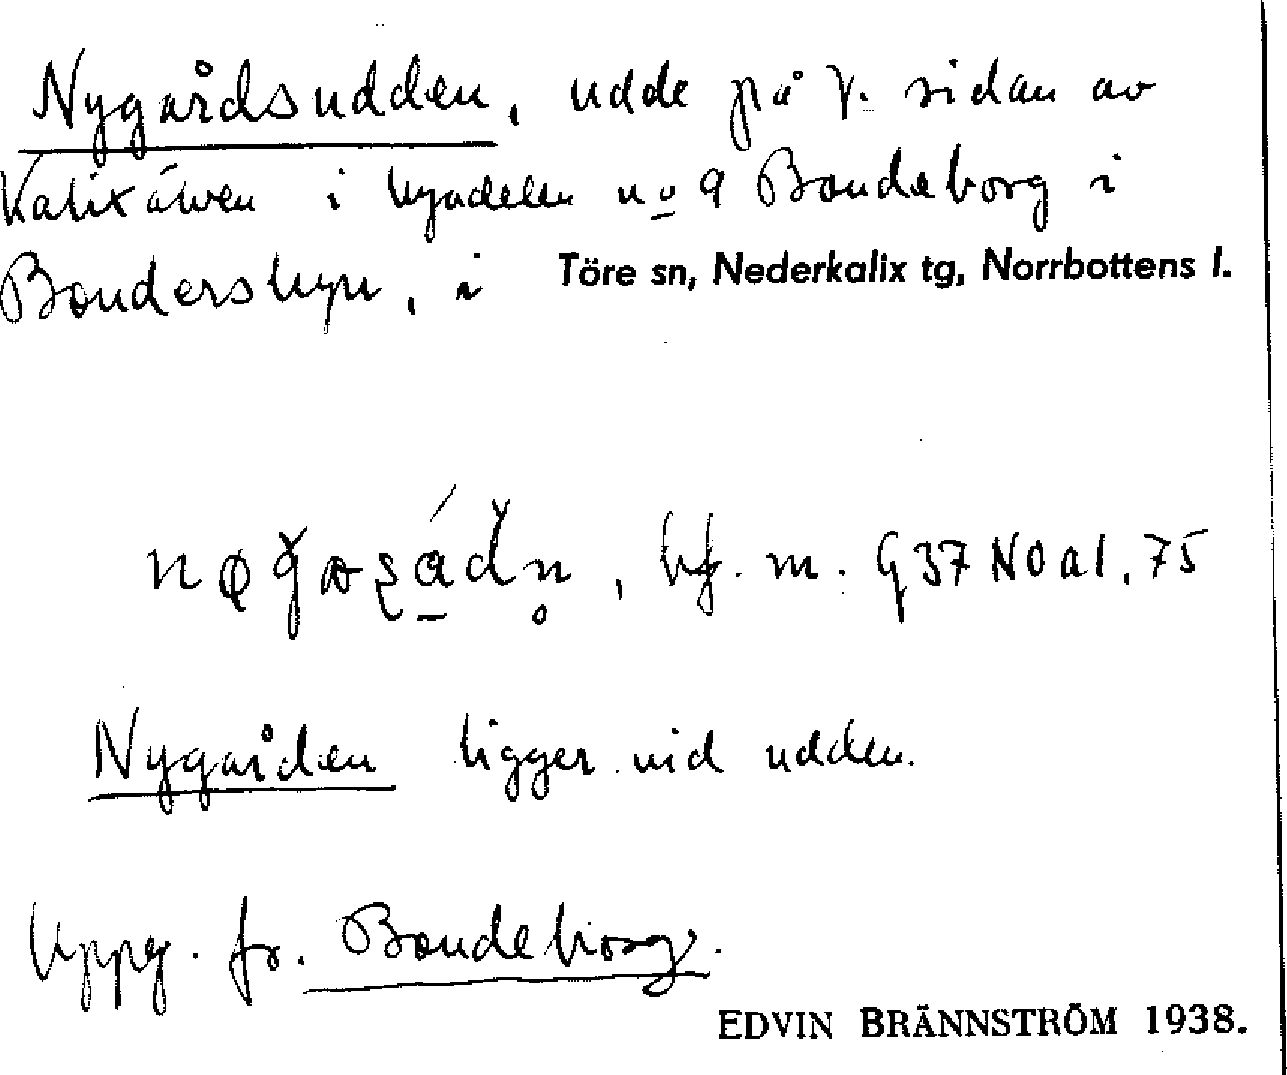 Nygårdsudden, udde på V. sidan av
Kalixälven i byadelen no 9 Bondeborg i
Bondersbyn, i Töre sn, Nederkalix tg, Norrbottens l.
bf. m. G 37 NO a1. 75
Nygården ligger vid udden.
Uppg. fr. Bondeborg.
EDVIN BRÄNNSTRÖM 1938.